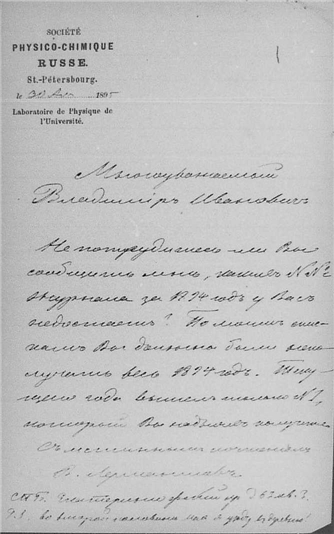 SOCIÉTÉ
PHYSICO-CHIMIQUE
RUSSE.
St.-Pétersbourg.
le 30 1895
Laboratoire de Physique de
l'Université.
Многоуважаемый
Владиміръ Ивановичъ
Не потрудитесь ли Вы
сообщить мнѣ, какихъ №№
журнала за 1894 годъ у Васъ
недостаетъ? По моимъ спис
камъ Вы должны были
получать весь 1894 годъ. Теку
щаго года вышелъ только №1,
который Вы надѣюсь получили
Съ истиннымъ почтеніемъ
В. Лермантовъ
СПб. Екатерингофскій пр. д 63 кв. 3.
въ второй половинѣ мая я уѣду въ деревню